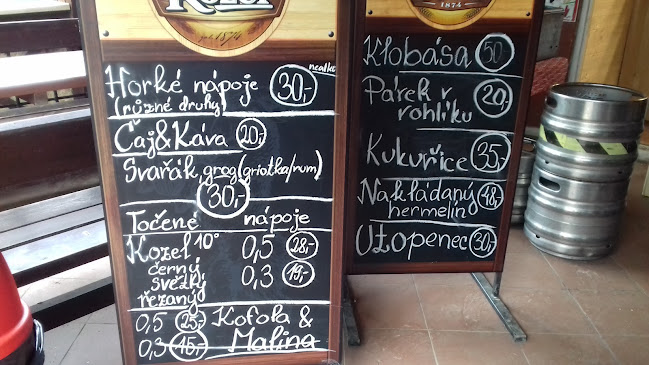 Kozel
1874
Horké nápoje 30,-
nealko
(různé druhy)
Čaj&Káva 20,-
Svařák, grog(griotka/rum)
30,-
Točené nápoje
Kozel 10° 0,5 28,-
černý 0,3 19,-
svězky
řezaný
0,5 25,- Kofola &
0,3 15,- Malina
1874
Klobása 50
Párek v 20,-
rohlíku
Kukuřice 35,-
Nakládaný 48,-
hermelín
Utopenec 30,-